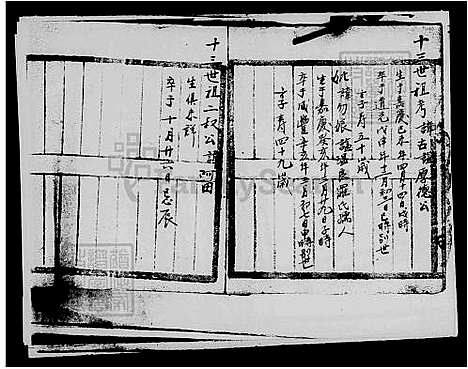 十二世祖考諱古諡厚德公
生于嘉慶己未年四月十四日戌時
卒于道光戊申年十一月初二日巳時別世
享壽五十歲
妣諱勿娘諡溫良羅氏孺人
生于嘉慶癸亥年 月廿九日子時
卒于咸豐辛亥年三月初七日申時別世
享壽四十九歲
十二世祖二叔公諱
生俱未詳
卒于十月廿六日忌辰
FamilySearch